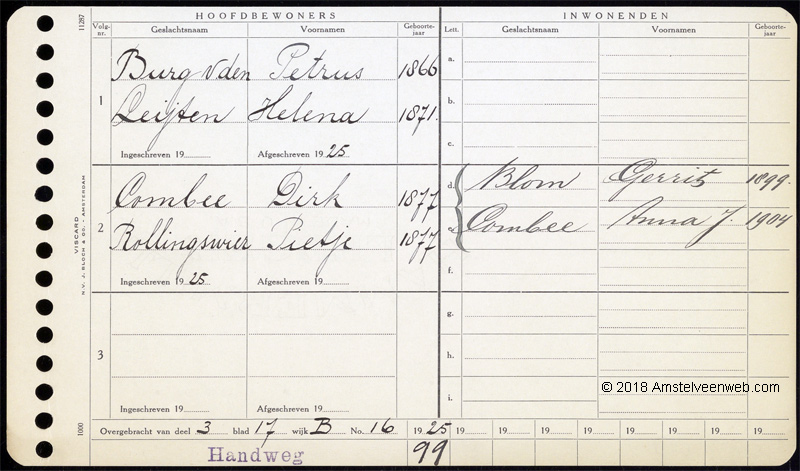 HOOFDBEWONERS INWONENDEN
Volg-nr. Geslachtsnaam Voornamen Geboorte-jaar Lett. Geslachtsnaam Voornamen Geboorte-jaar
11287
1
Burg v den Petrus 1866 a.
Leijten Helena 1871. b.
c.
Ingeschreven 19 Afgeschreven 1925
2
Combee Dirk 1877 d. Blom Gerrit 1899.
Rollingswier Pietje 1877 e. Combee Anna J. 1904
f.
Ingeschreven 19 25 Afgeschreven 19
VISCARD
N.V. J. BLOCH & Co. AMSTERDAM
3
g.
h.
i.
Ingeschreven 19 Afgeschreven 19
© 2018 Amstelveenweb.com
1000
Overgebracht van deel 3 blad 17 wijk B No. 16 19 25 19 19 19 19 19 19 19 19
Handweg 99